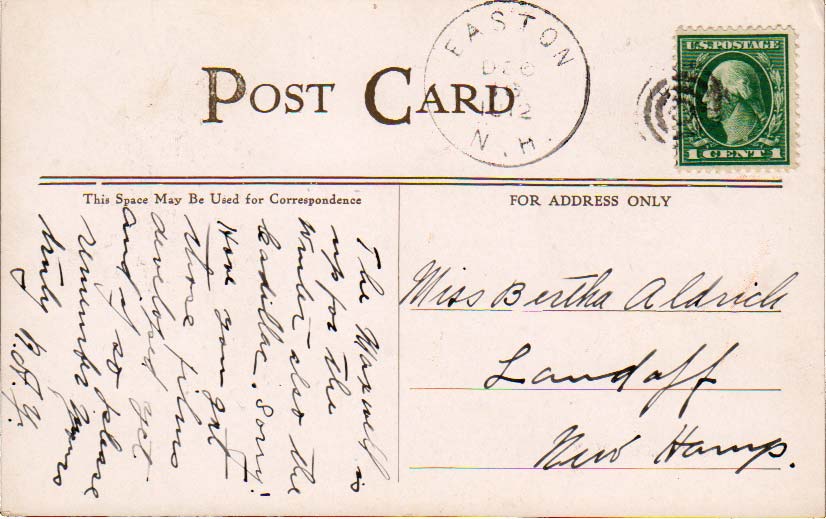 POST CARD
EASTON
DEC 6
1912
N.H.
U.S. POSTAGE
1 CENT 1
This Space May Be Used for Correspondence
FOR ADDRESS ONLY
The Maxwell is
up for the
winter also the
Cadillac. Sorry!
Have you got
those films
developed yet
and if so please
remember yours
truly
Miss Bertha Aldrich
Landaff
New Hamp.